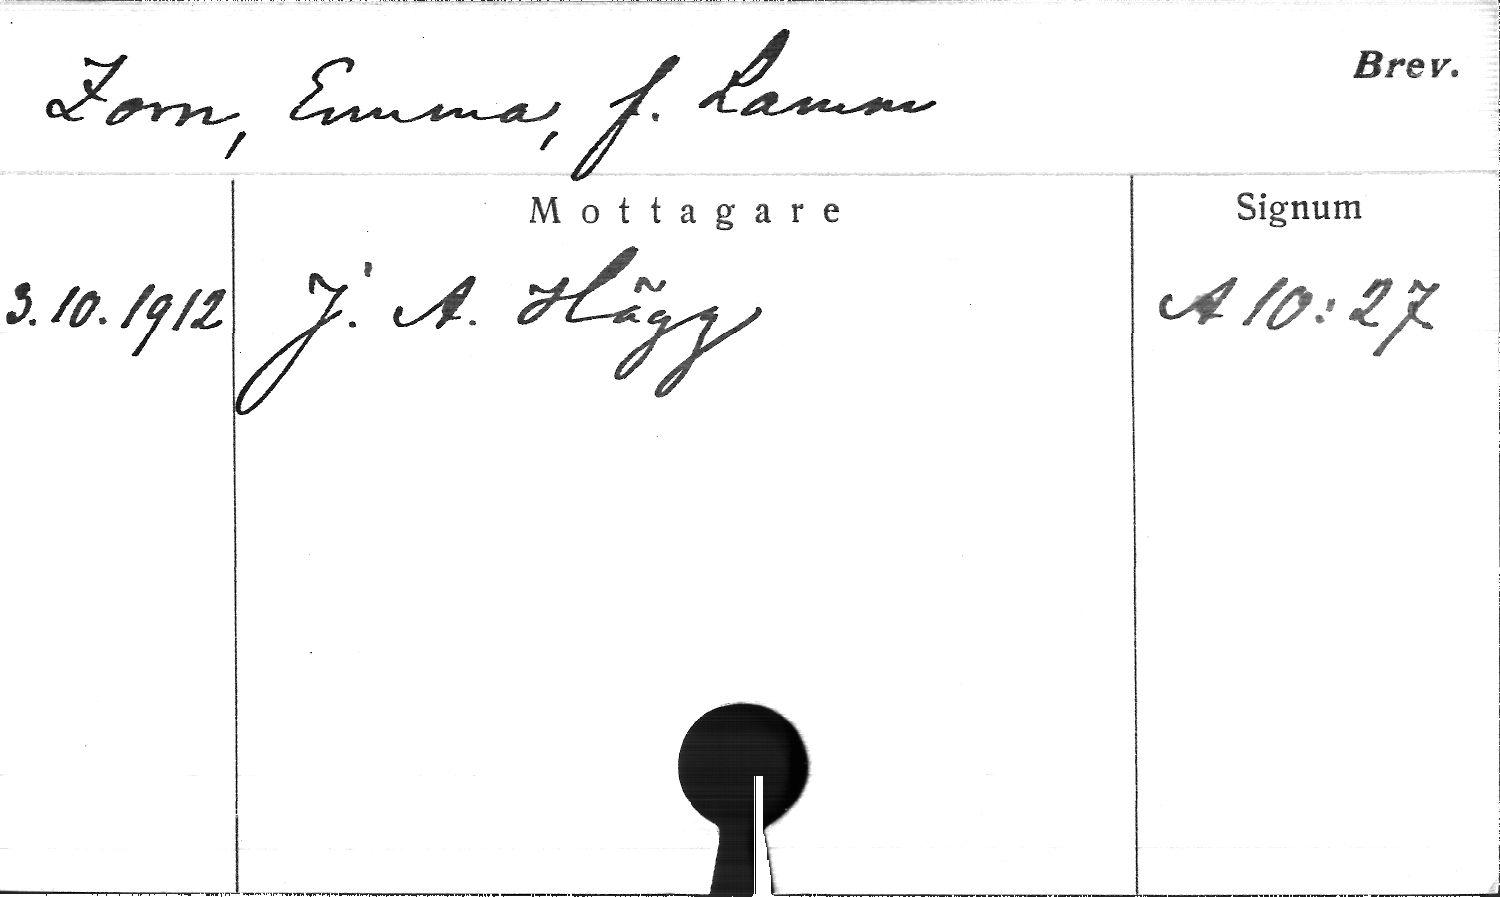 Zorn, Emma, f. Lamm
Brev.
Mottagare
Signum
3.10.1912 J. A. Hägg A 10:27